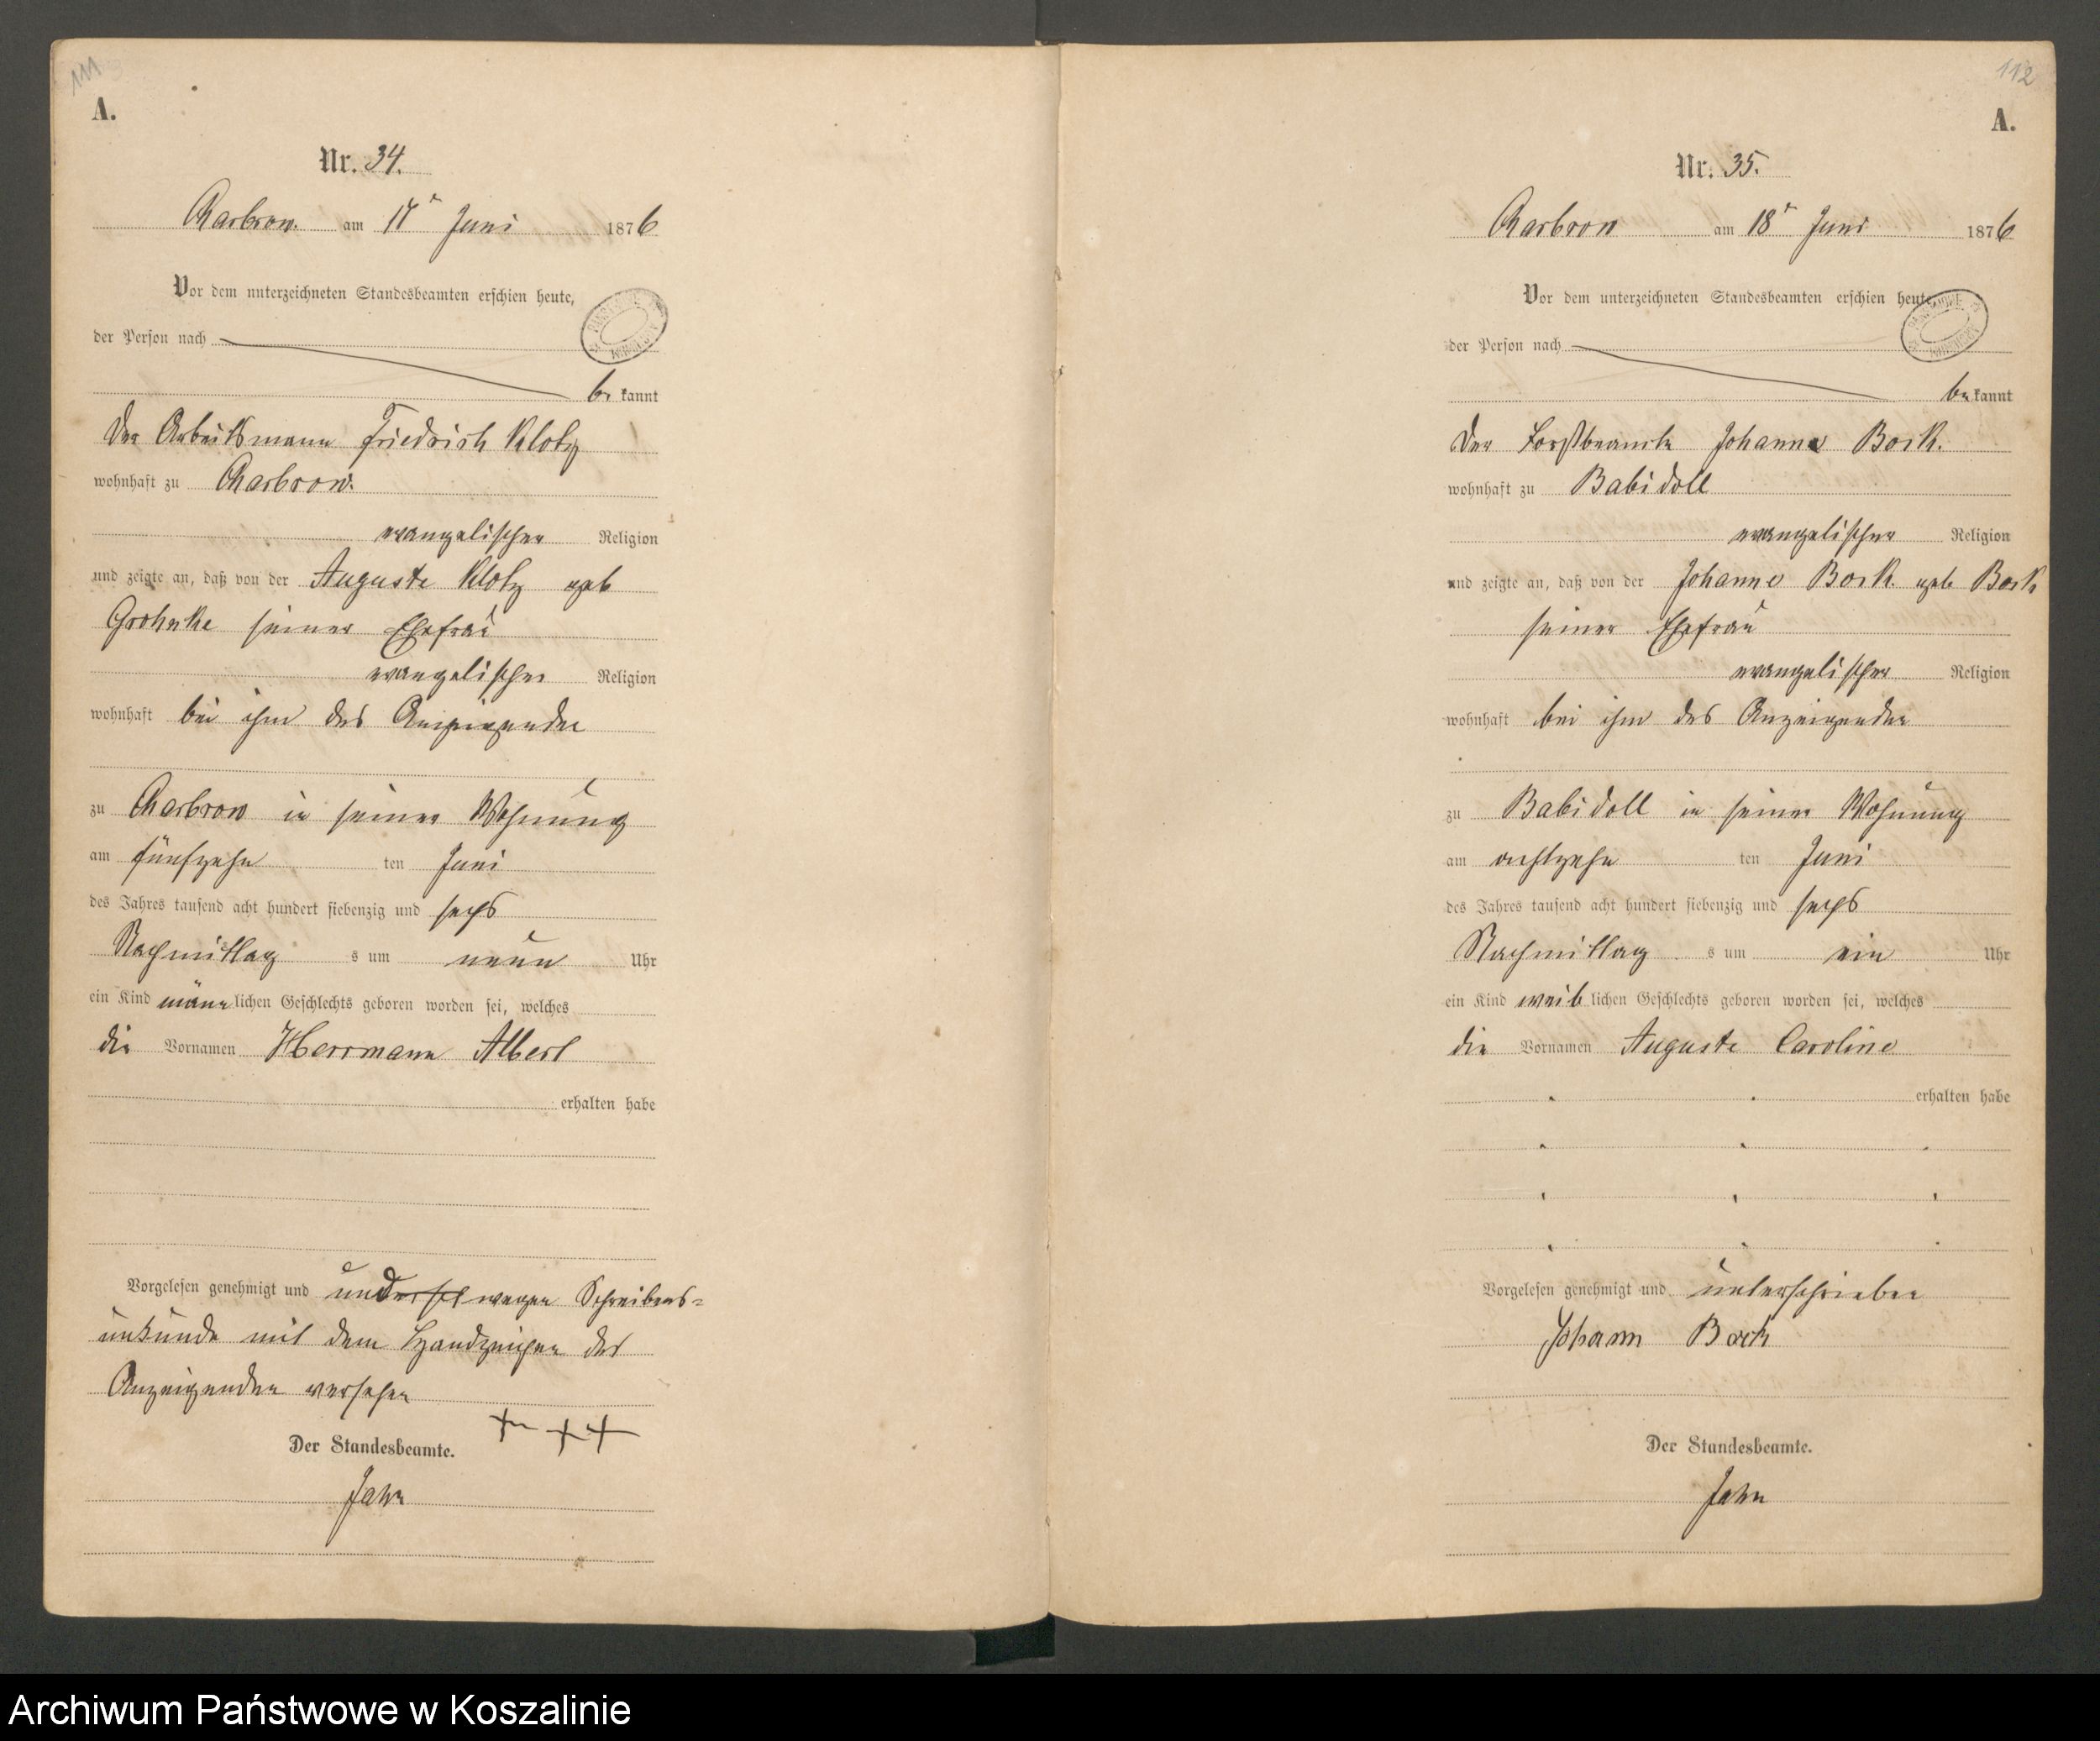 111
A.
Nr. 34.
Charbrow. am 17t Juni 1876
Vor dem unterzeichneten Standesbeamten erschien heute,
der Person nach
be kannt
Der Arbeitsmann Friedrich Klotz
wohnhaft zu Charbrow.
evangelischer Religion
und zeigte an, daß von der Auguste Klotz geb
Grohnke seiner Ehefrau
evangelischer Religion
wohnhaft bei ihm des Anzeigenden
zu Charbrow in seiner Wohnung
am fünfzehn ten Juni
des Jahres tausend acht hundert siebenzig und sechs
Nachmittag s um neun Uhr
ein Kind männ lichen Geschlechts geboren worden sei, welches
die Vornamen Herrmann Albert
erhalten habe
Vorgelesen genehmigt und wegen Schreibens-
unkunde mit dem Handzeichen des
Anzeigenden versehen
+ + +
Der Standesbeamte.
Jahn
112
A.
Nr. 35.
Charbrow am 18t Juni 1876
Vor dem unterzeichneten Standesbeamten erschien heute,
der Person nach
be kannt
Der Forstbeamte Johann Bock.
wohnhaft zu Babidoll
evangelischer Religion
und zeigte an, daß von der Johanne Bock geb Bock
seiner Ehefrau
evangelischer Religion
wohnhaft bei ihm des Anzeigenden
zu Babidoll in seiner Wohnung
am achtzehn ten Juni
des Jahres tausend acht hundert siebenzig und sechs
Nachmittag s um ein Uhr
ein Kind weib lichen Geschlechts geboren worden sei, welches
die Vornamen Auguste Caroline
erhalten habe
Vorgelesen genehmigt und unterschrieben
Johann Bock
Der Standesbeamte.
Jahn
Archiwum Państwowe w Koszalinie